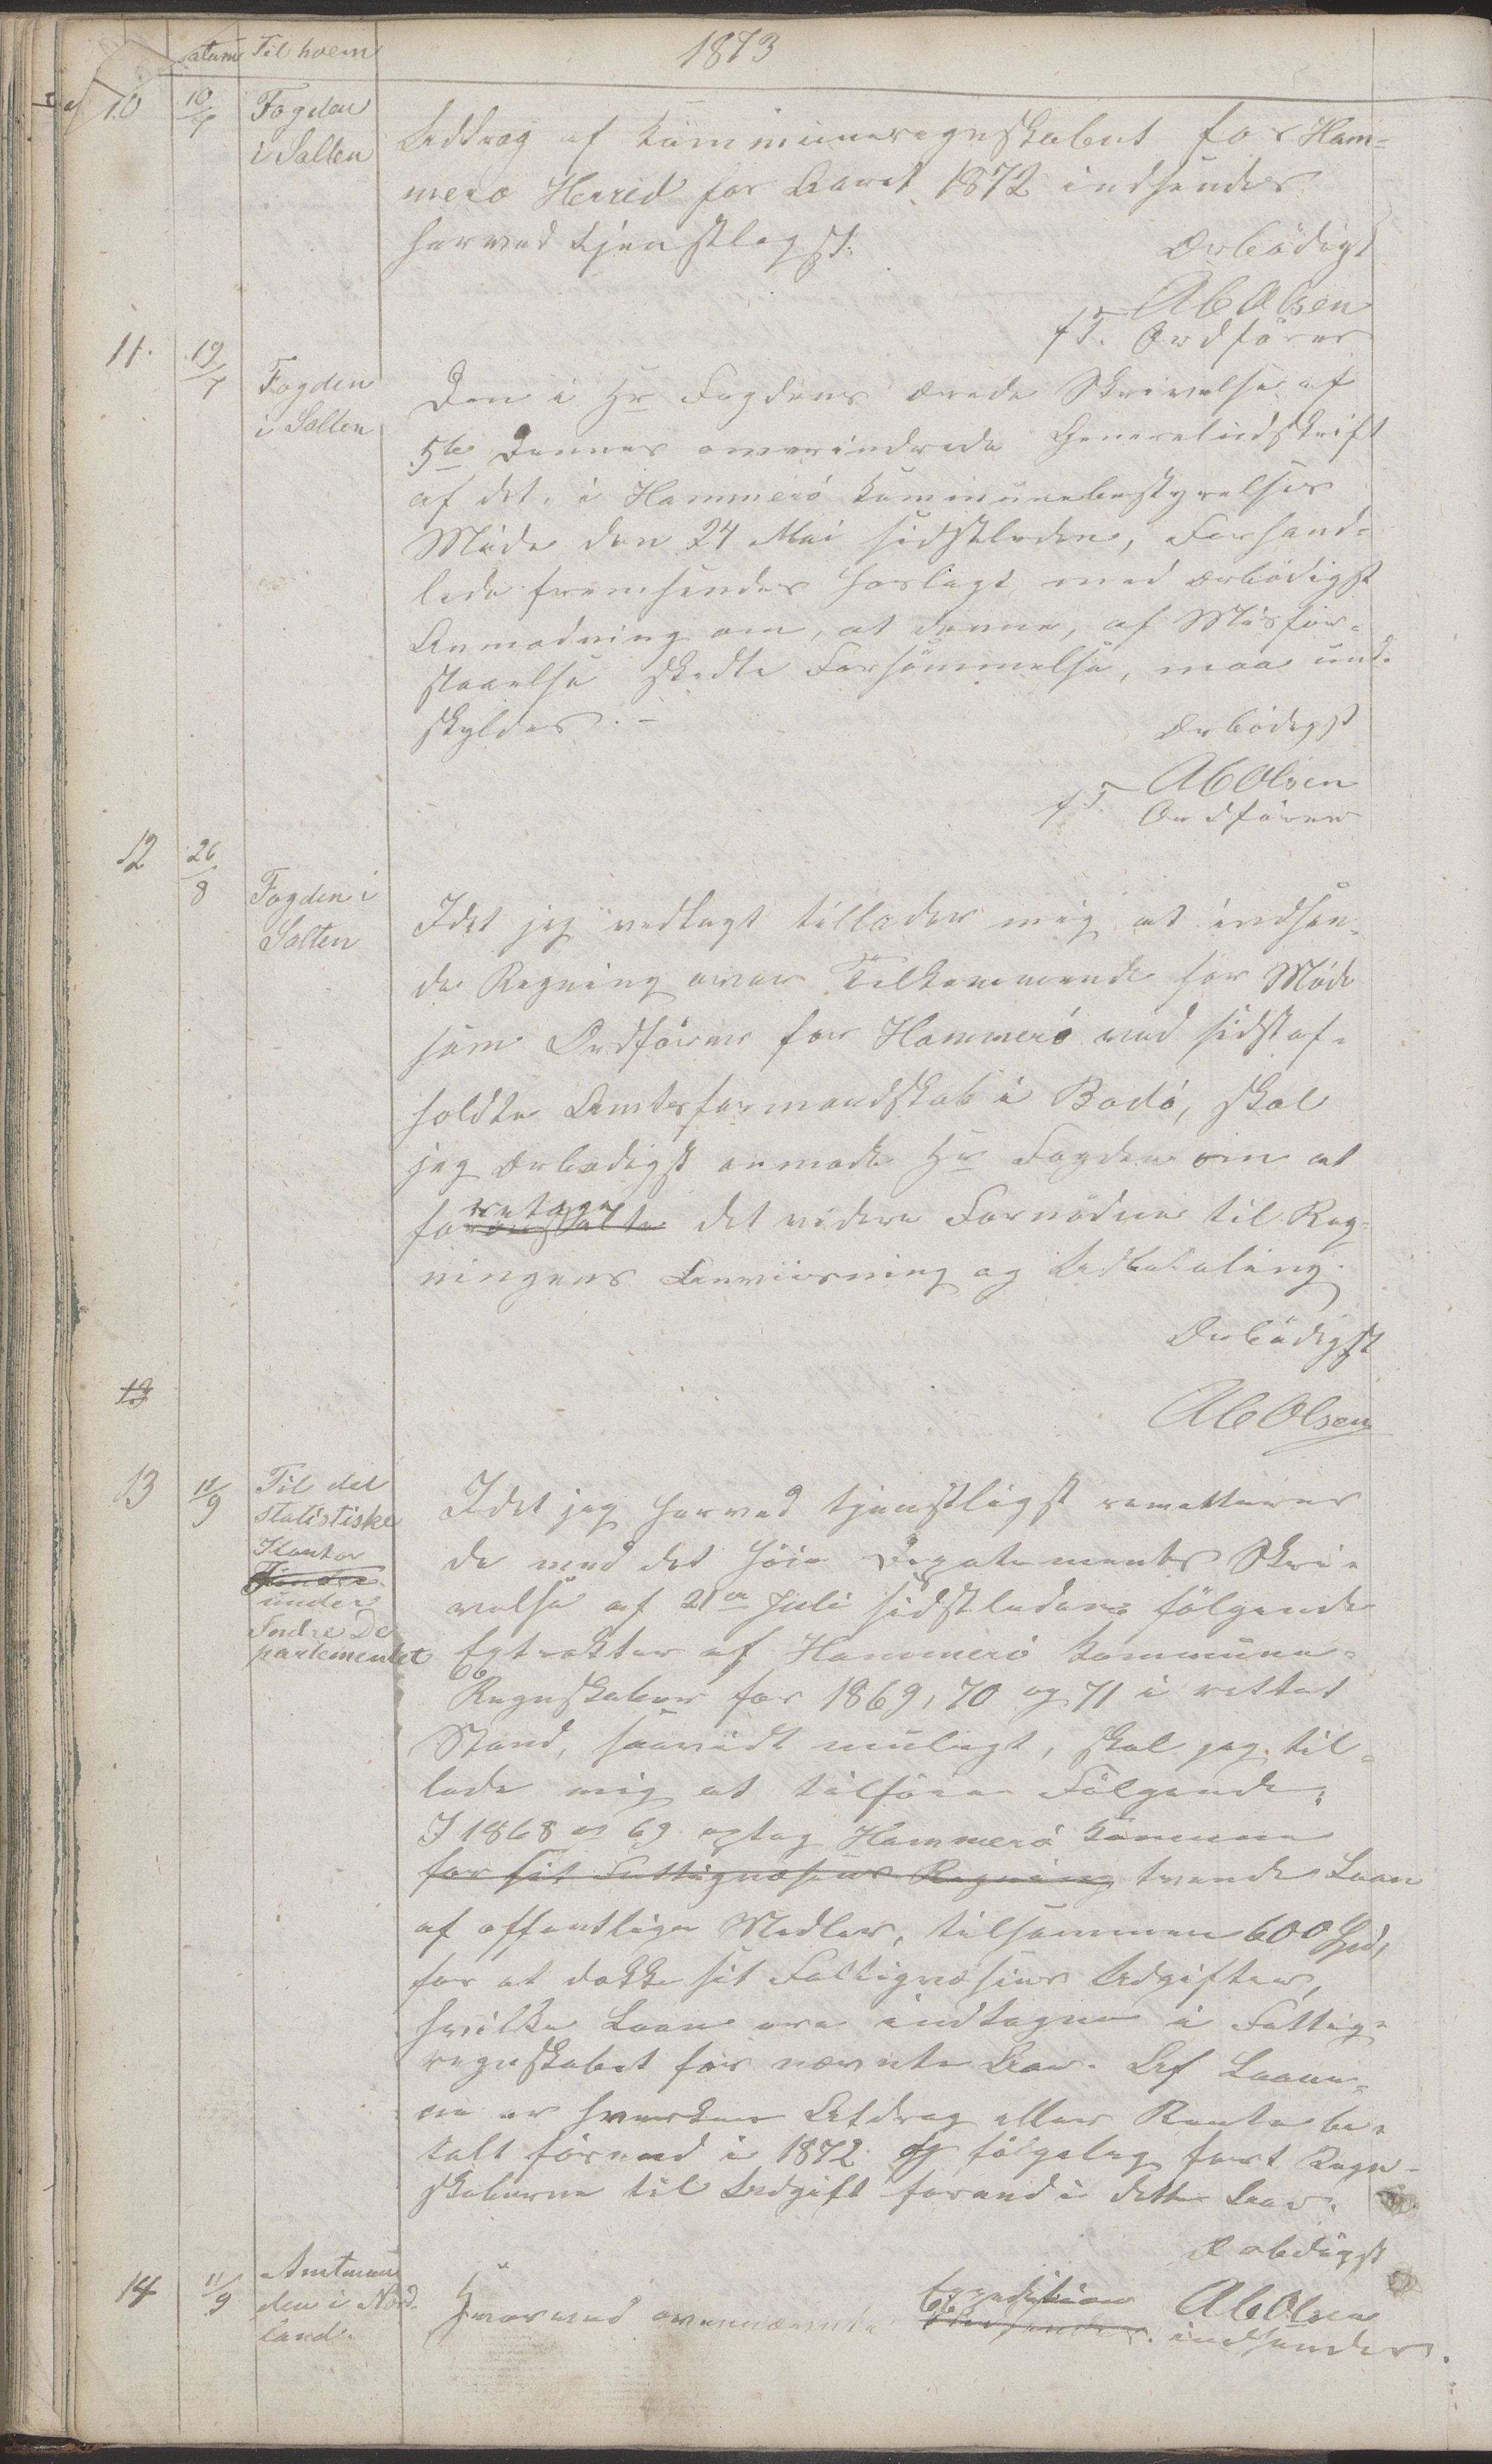 Datum Til hvem 1873
10 10/7 Fogden i Salten
Uddrag af Kommuneregnskabet for Ham-
merø Herred for Aaret 1872 indsendes
herved tjenstligst.
Ærbødigst
Ab Olsen
f. T. Ordfører
11. 19/7 Fogden i Salten
Den i Hr Fogdens ærede Skrivelse af
5te Dennes omerindrede Genereludskrift
af det, i Hammerø Kommunebestyrelses
Møde den 24 Mai sidstleden, Forhand-
lede fremsendes herlagt, med ærbødigst
Anmodning om, at denne, af Misfor-
staaelse skedte Forsømmelse, maa und-
skyldes. -
Ærbødigst
Ab Olsen
f. T. Ordfører
12 26/8 Fogden i Salten
Idet jeg vedlagt tillader mig at indsen-
de Regning over Tilkommende for Møde
som Ordfører for Hammerø ved sidst af-
holdte Amtsformandskab i Bodø, skal
jeg ærbødigst anmode Hr Fogden om at
foretage
foranstalte det videre Fornødne til Reg-
ningens Anviisning og Udbetaling.
Ærbødigst
Ab Olsen
13
13 11/9 Til det
statistiske
Kontor
under
Indre De
partementet
Idet jeg herved tjenstligst remitterer
de med det høie Departements Skri-
velse af 21de Juli sidstleden følgende
Extrakter af Hammerø Kommune-
Regnskaber for 1869, 70 og 71 i rettet
Stand, saavidt muligt, skal jeg til-
lade mig at tilføie Følgende:
I 1868 og 69 optog Hammerø Kommune
for sit Fattigvæsens Regning tvende Laan
af offentlige Midler, tilsammen 600 Spd,
for at dække sit Fattigvæsens Udgifter,
hvilke Laan ere indtagne i Fattig-
regnskabet for nævnte Aar. Af Laane-
ne er hverken Afdrag eller Rente be-
talt førend i 1872 og følgelig ført Regn-
skaberne til Udgift førend i dette Aar.
Ærbødigst
Ab Olsen
14 11/9 Amtman
den i Nord-
land.
Hvormed ovennævnte Expedition
indsendes.